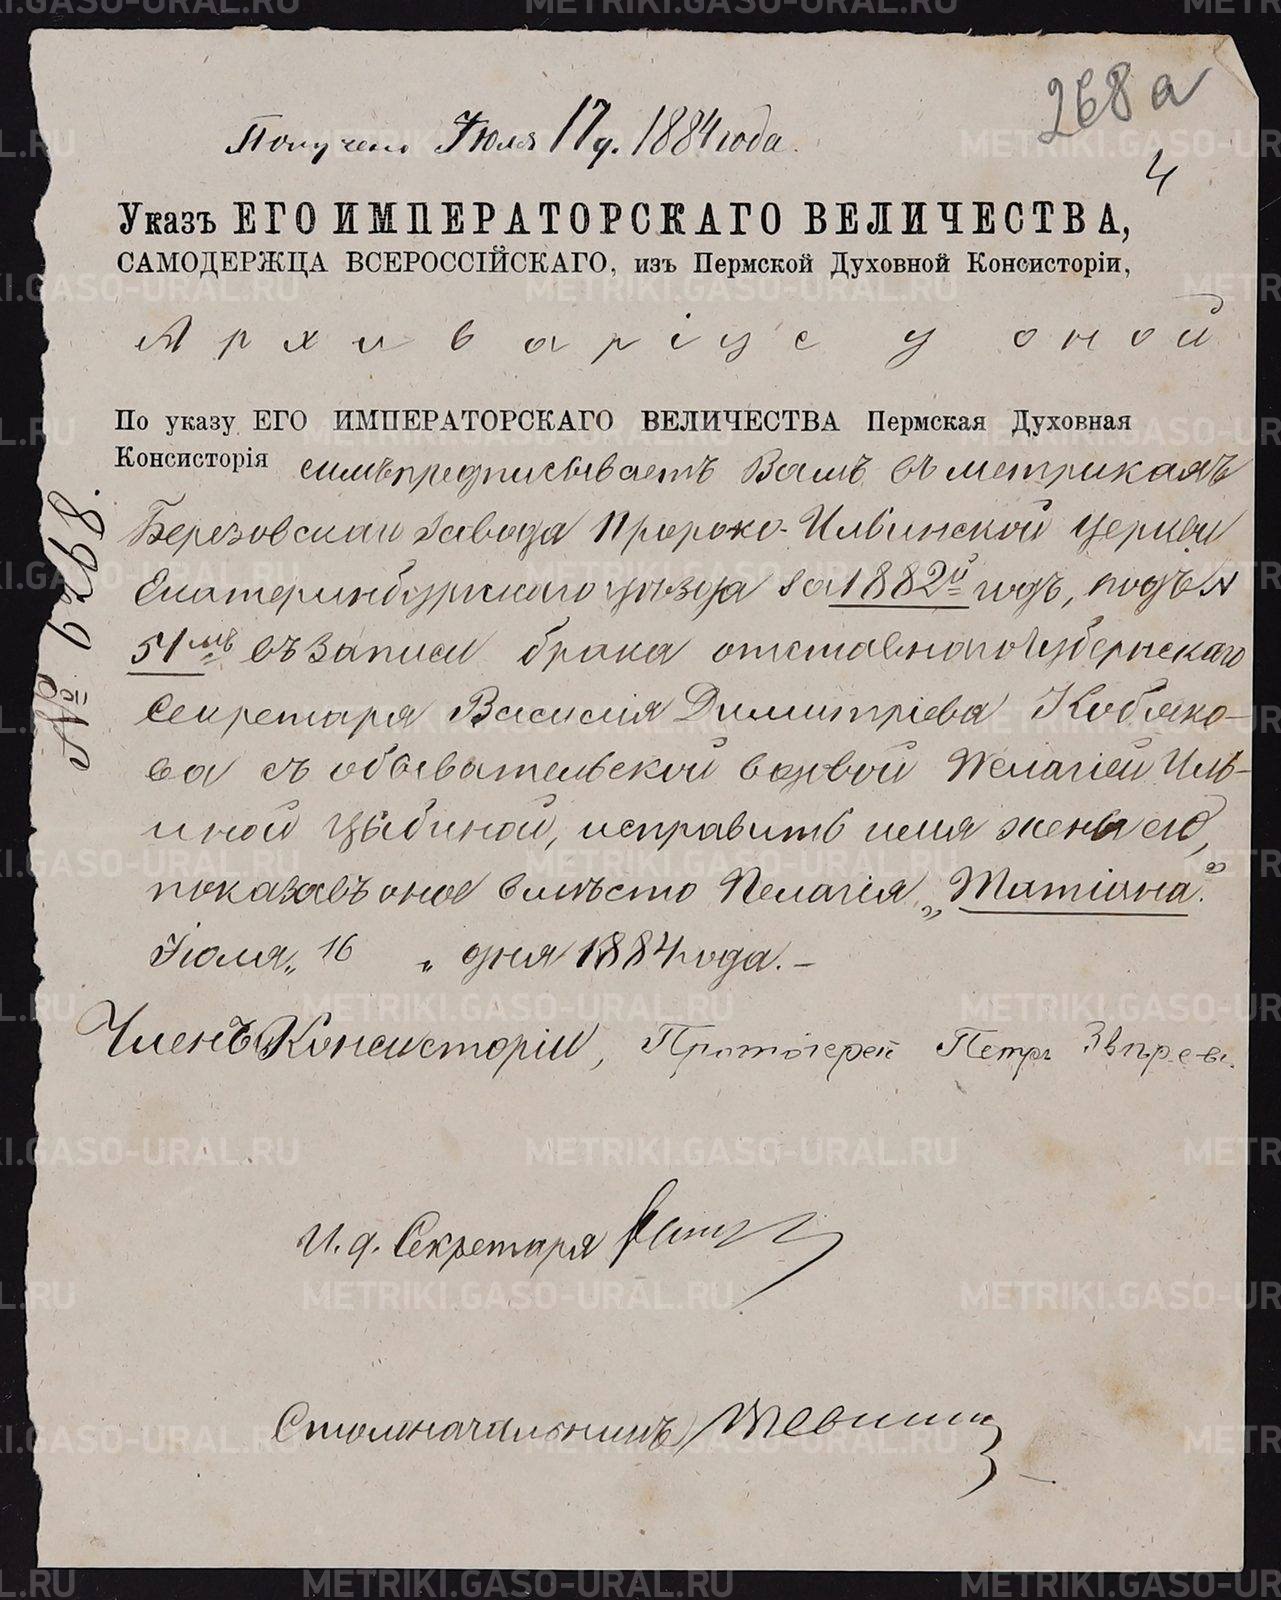 268а
Получено Іюля 17 д. 1884 года.
4
Указъ ЕГО ИМПЕРАТОРСКАГО ВЕЛИЧЕСТВА,
САМОДЕРЖЦА ВСЕРОССІЙСКАГО, изъ Пермской Духовной Консисторіи,
Архиваріусу оной
По указу ЕГО ИМПЕРАТОРСКАГО ВЕЛИЧЕСТВА Пермская Духовная
Консисторія симъ предписываетъ Вамъ въ метрикахъ
Березовскаго завода Пророко-Ильинской церкви
Екатеринбургскаго уѣзда за 1882й годъ, подъ №
51мъ въ записи брака отставнаго Губернскаго
Секретаря Василія Димитріева Кобяко-
ва съ обывательской вдовой Пелагіей Иль-
иной Цыбиной, исправить имя жены его,
показавъ оное вмѣсто Пелагія „Татіана“.
Іюля „16„ дня 1884 года.–
№ 6298.
Членъ Консисторіи, Протоіерей Петръ Звѣревъ.
И. д. Секретаря
Столоначальникъ
METRIKI.GASO-URAL.RU